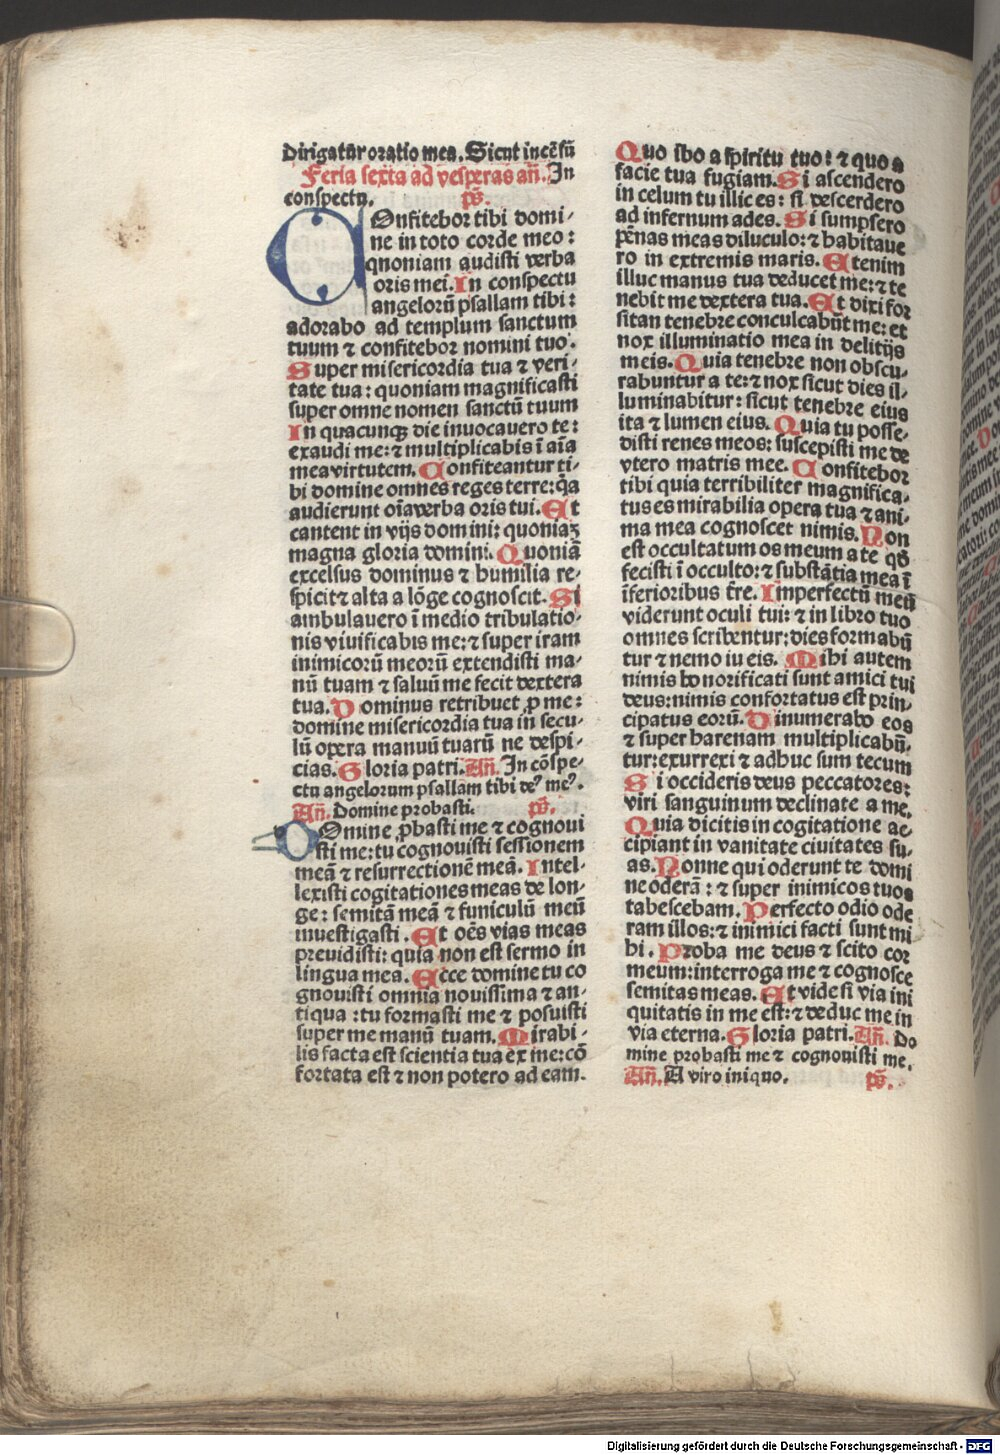 Dirigatur oratio mea. Sicut incēsū
Feria sexta ad vesperas an̄. In
conspectu. ps̄.
COnfitebor tibi domi-
ne in toto corde meo:
quoniam audisti verba
oris mei. In conspectu
angelorū psallam tibi:
adorabo ad templum sanctum
tuum ⁊ confitebor nomini tuo.
Super misericordia tua ⁊ veri-
tate tua: quoniam magnificasti
super omne nomen sanctū tuum
In quacunqꝫ die inuocauero te:
exaudi me: ⁊ multiplicabis ī aīa
mea virtutem. Confiteantur ti-
bi domine omnes reges terre: q̄a
audierunt oīa verba oris tui. Et
cantent in vijs domini: quoniaꝫ
magna gloria domini. Quoniā
excelsus dominus ⁊ humilia re-
spicit ⁊ alta a lōge cognoscit. Si
ambulauero ī medio tribulatio-
nis viuificabis me: ⁊ super iram
inimicorū meorū extendisti ma-
nū tuam ⁊ saluū me fecit dextera
tua. Dominus retribuet ꝓ me:
domine misericordia tua in secu-
lū opera manuū tuarū ne despi-
cias. Gloria patri. An̄. In cōspe-
ctu angelorum psallam tibi deꝰ meꝰ.
An̄. Domine probasti. ps̄.
DOmine ꝓbasti me ⁊ cognoui
sti me: tu cognouisti sessionem
meā ⁊ resurrectionē meā. Intel-
lexisti cogitationes meas de lon-
ge: semitā meā ⁊ funiculū meū
inuestigasti. Et oēs vias meas
preuidisti: quia non est sermo in
lingua mea. Ecce domine tu co
gnouisti omnia nouissima ⁊ an-
tiqua: tu formasti me ⁊ posuisti
super me manū tuam. Mirabi-
lis facta est scientia tua ex me: cō
fortata est ⁊ non potero ad eam.
Quo ibo a spiritu tuo: ⁊ quo a
facie tua fugiam. Si ascendero
in celum tu illic es: si descerdero
ad infernum ades. Si sumpsero
pēnas meas diluculo: ⁊ habitaue
ro in extremis maris. Etenim
illuc manus tua deducet me: ⁊ te
nebit me dextera tua. Et dixi for
sitan tenebre conculcabūt me: et
nox illuminatio mea in delitijs
meis. Quia tenebre non obscu-
rabuntur a te: ⁊ nox sicut dies il-
luminabitur: sicut tenebre eius
ita ⁊ lumen eius. Quia tu posse-
disti renes meos: suscepisti me de
vtero matris mee. Confitebor
tibi quia terribiliter magnifica-
tus es mirabilia opera tua ⁊ ani-
ma mea cognoscet nimis. Non
est occultatum os meum a te qđ
fecisti ī occulto: ⁊ substātia mea ī
īferioribus tre. Imperfectū meū
viderunt oculi tui: ⁊ in libro tuo
omnes scribentur: dies formabū
tur ⁊ nemo iu eis. Mihi autem
nimis honorificati sunt amici tui
deus: nimis confortatus est prin-
cipatus eorū. Dinumerabo eos
⁊ super harenam multiplicabū-
tur: exurrexi ⁊ adhuc sum tecum
Si occideris deus peccatores:
viri sanguinum declinate a me.
Quia dicitis in cogitatione ac-
cipiant in vanitate ciuitates su-
as. Nonne qui oderunt te domi
ne oderā: ⁊ super inimicos tuos
tabescebam. Perfecto odio ode
ram illos: ⁊ inimici facti sunt mi
hi. Proba me deus ⁊ scito cor
meum: interroga me ⁊ cognosce
semitas meas. Et vide si via ini
quitatis in me est: ⁊ deduc me in
via eterna. Gloria patri. An̄. Do
mine probasti me ⁊ cognouisti me.
An̄. A viro iniquo. ps̄.
Digitalisierung gefördert durch die Deutsche Forschungsgemeinschaft - DFG